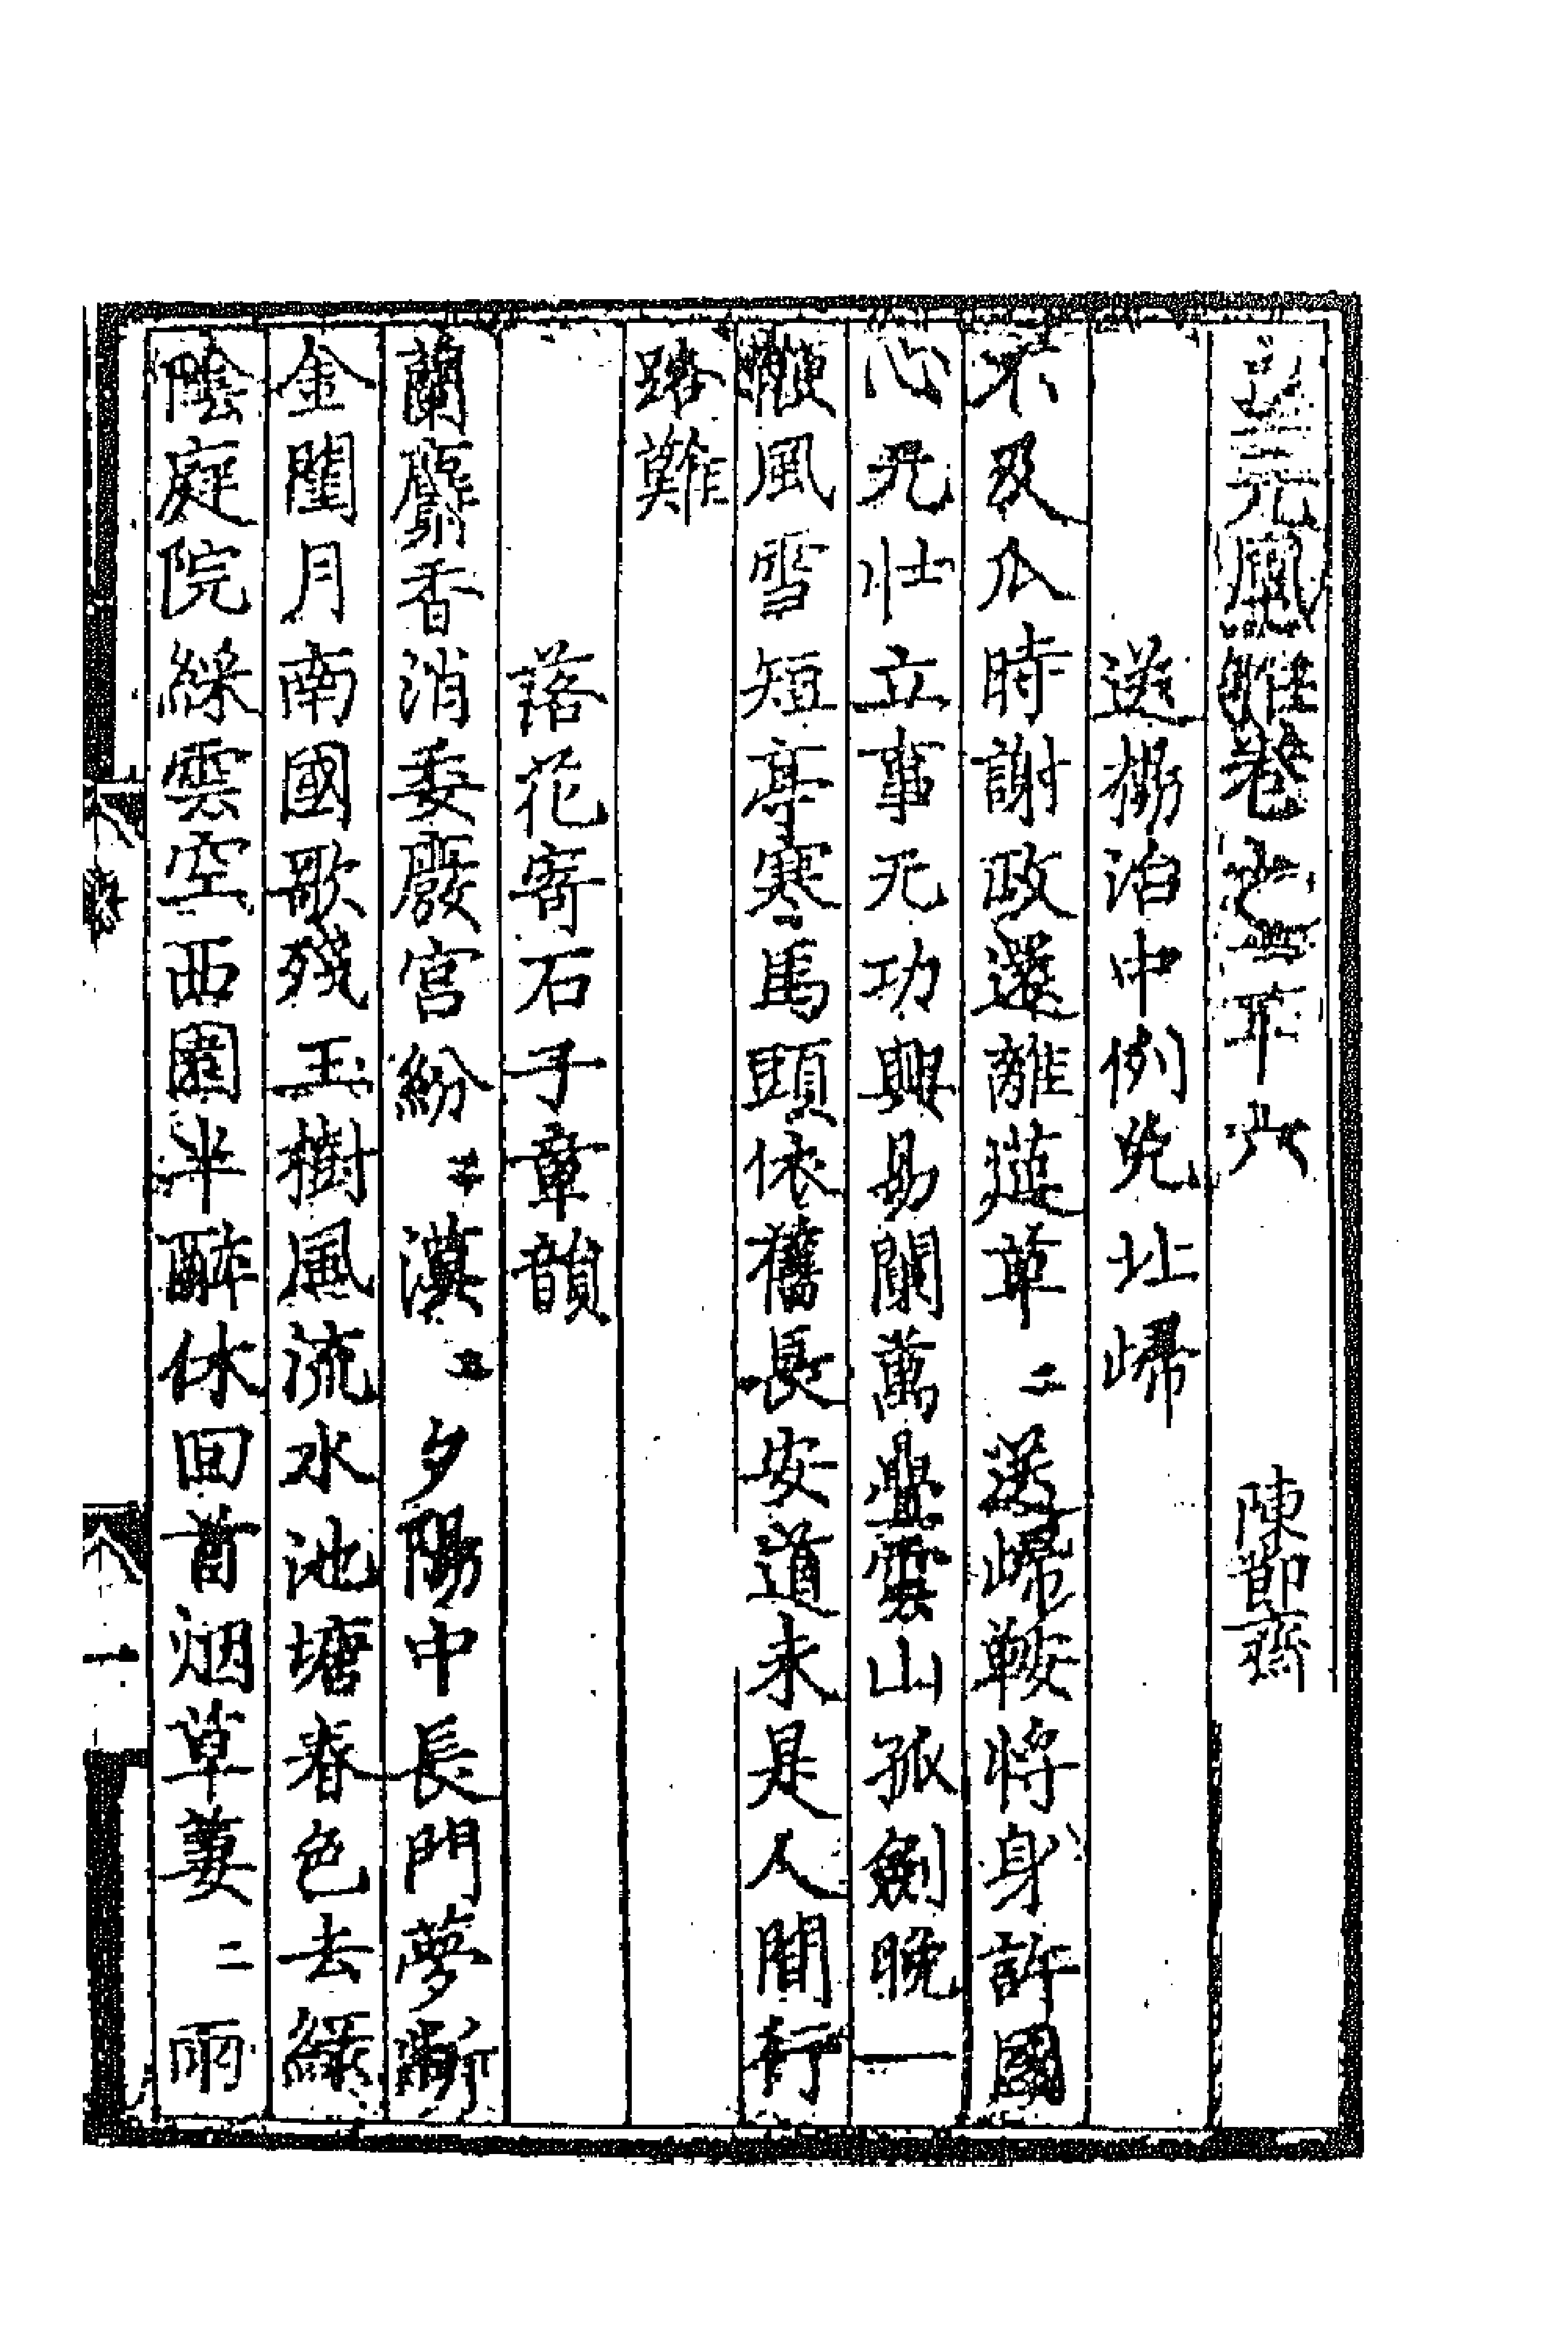 皇元風雅卷之二十六 陳節齋
送楊治中例免北歸
不及瓜時謝政還離筵草二送歸鞍將身許國
心旡壯立事旡功興易闌萬疊雲山孤劍晚一
鞭風雪短亭寒馬頭依舊長安道未是人間行
路難
落花寄石子章韻
蘭麝香消委廢宮紛二漠二夕陽中長門夢斷
金閨月南國歌殘玉樹風流水池塘春色去綠
陰庭院綵雲空西園半醉休回首烟草萋二雨
一